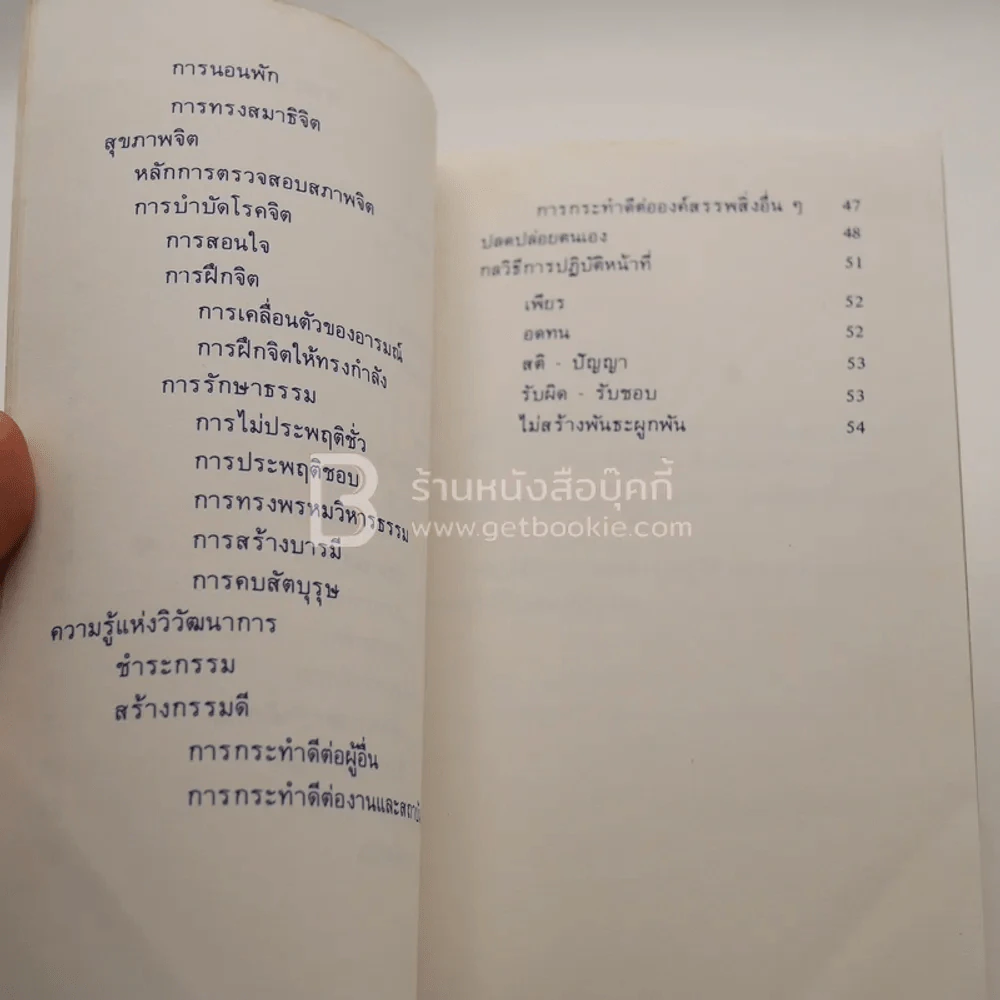 การนอนพัก
การทรงสมาธิจิต
สุขภาพจิต
หลักการตรวจสอบสภาพจิต
การบำบัดโรคจิต
การสอนใจ
การฝึกจิต
การเคลื่อนตัวของอารมณ์
การฝึกจิตให้ทรงกำลัง
การรักษาธรรม
การไม่ประพฤติชั่ว
การประพฤติชอบ
การทรงพรหมวิหารธรรม
การสร้างบารมี
การคบสัตบุรุษ
ความรู้แห่งวิวัฒนาการ
ชำระกรรม
สร้างกรรมดี
การกระทำดีต่อผู้อื่น
การกระทำดีต่องานและ
การกระทำดีต่อองค์สรรพสิ่งอื่น ๆ 47
ปลดปล่อยตนเอง 48
กลวิธีการปฏิบัติหน้าที่ 51
เพียร 52
อดทน 52
สติ - ปัญญา 53
รับผิด - รับชอบ 53
ไม่สร้างพันธะผูกพัน 54
B ร้านหนังสือบุ๊คกี้
www.getbookie.com